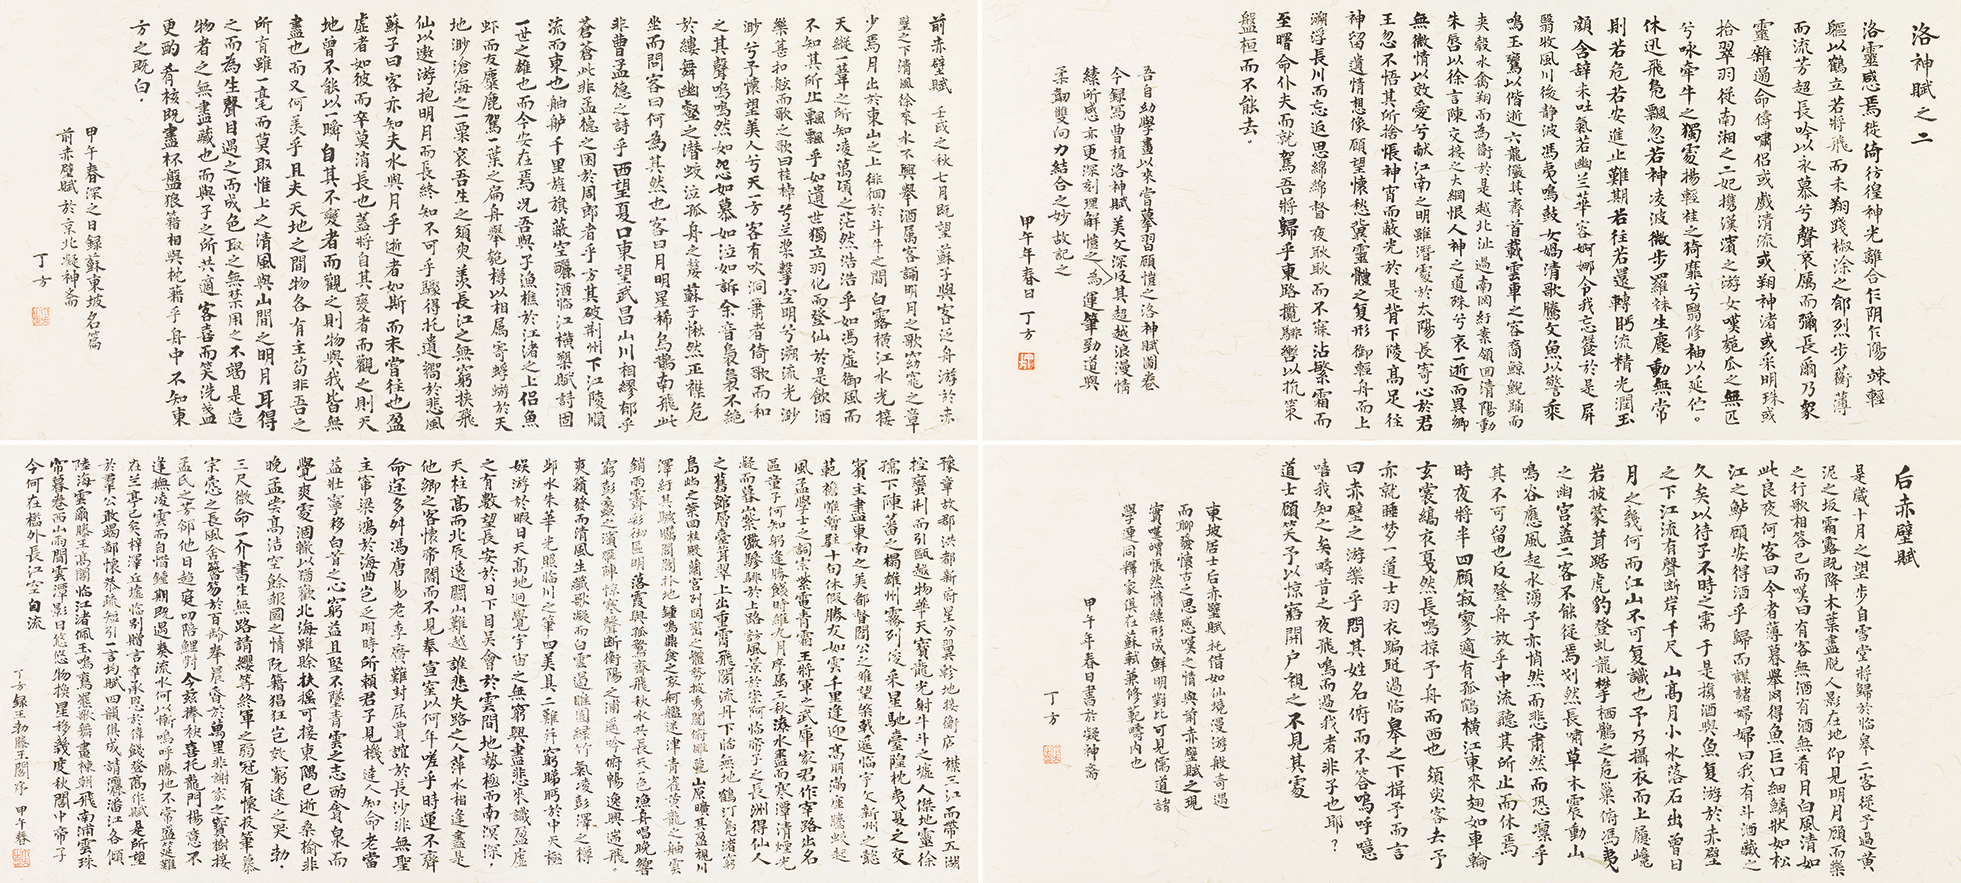 洛神賦之二
洛靈感焉徙倚彷徨神光離合乍阴乍陽竦輕
軀以鶴立若將飛而未翔踐椒涂之郁烈步蘅薄
而流芳超長吟以永慕兮聲哀厲而彌長爾乃衆
靈雜遝命儔嘯侶或戲清流或翔神渚或采明珠或
拾翠羽從南湘之二妃攜漢濱之游女嘆匏瓜之無匹
兮咏牽牛之獨處揚輕袿之猗靡兮翳修袖以延伫。
休迅飛鳧飄忽若神凌波微步羅襪生塵動無常
則若危若安進止難期若往若還轉眄流精光潤玉
顔含辞未吐氣若幽兰華容婀娜令我忘餐於是屏
翳收風川後静波馮夷鳴鼓女媧清歌騰文魚以警乘
鳴玉鸞以偕逝六龍儼其齊首載雲車之容裔鯨鯢踊而
夾轂水禽翔而為衛於是越北沚過南岡紆素領回清陽動
朱唇以徐言陳交接之大綱恨人神之道殊兮哀一逝而異鄉
無微情以效愛兮献江南之明雖潛處於太陽長寄心於君
王忽不悟其所捨悵神宵而蔽光於是背下陵高足往
神留遺情想像顧望懷愁冀靈體之复形御輕舟而上
溯浮長川而忘返思綿綿督夜耿耿而不寐沾繁霜而
至曙命仆夫而就駕吾將歸乎東路攬騑轡以抗策
盤桓而不能去。
吾自幼學畫以來嘗摹習顧愷之洛神賦圖卷
今録寫曹植洛神賦美文深及其超越浪漫情
緒所感亦更深刻理解愷之為運筆勁道與
柔韌雙向力結合之妙故記之
甲午年春日丁方
前赤壁賦 壬戌之秋七月既望蘇子與客泛舟游於赤
壁之下清風徐來水不興舉酒属客誦明月之歌窈窕之章
少焉月出於東山之上徘徊於斗牛之間白露横江水光接
天縱一葦之所知凌萬頃之茫然浩浩乎如馮虛御風而
不知其所止飄飄乎如遺世獨立羽化而登仙於是飲酒
樂甚扣舷而歌之歌曰桂棹兮兰槳擊空明兮溯流光渺
渺兮予懷望美人兮天一方客有吹洞簫者倚歌而和
之其聲嗚嗚然如怨如慕如泣如訴余音裊裊不絶
於縷舞幽壑之潜蛟泣孤舟之嫠蘇子愀然正襟危
坐而問客曰何為其然也客曰月明星稀烏鵲南飛此
非曹孟德之詩乎西望夏口東望武昌山川相繆郁乎
蒼蒼此非孟德之困於周郎者乎方其破荆州下江陵順
流而東也舳艫千里旌旗蔽空釃酒临江横槊賦詩固
一世之雄也而今安在焉况吾與子漁樵於江渚之上侣魚
虾而友麋鹿駕一葉之扁舟舉匏樽以相属寄蜉蝣於天
地渺滄海之一粟哀吾生之須臾羡長江之無窮挾飛
仙以遨游抱明月而長終知不可乎驟得托遺響於悲風
蘇子曰客亦知夫水與月乎逝者如斯而未嘗往也盈
虚者如彼而卒莫清長也蓋將自其變者而觀之則天
地曾不能以一瞬自其不變者而觀之則物與我皆無
盡也而又何羨乎且夫天地之間物各有主苟非吾之
所有雖一毫而莫取惟上之清風與山間之明月耳得
之而為生聲目遇之而成色取之無禁用之不竭是造
物者之無盡藏也而與子之所共適客喜而笑洗盏
更酌肴核既盡杯盤狼籍相與枕藉乎舟中不知東
方之既白。
甲午春深之日録蘇東坡名篇
前赤壁賦於京北凝神斋
丁方
后赤壁賦
是歲十月之望步自雪堂將歸於临皋二客從予過黄
泥之坂霜露既降木葉盡脱人影在地仰見明月顧而樂
之行歌相答已而嘆曰有客無酒有酒無肴月白風清如
此良夜何客曰今者薄暮舉网得魚巨口細鱗狀如松
江之鲈顧安得酒乎歸而謀諸婦婦曰我有斗酒藏之
久矣以待子不時之需于是携酒與魚复游於赤壁
之下江流有聲斷岸千尺山高月小水落石出曾日
月之幾何而江山不可复識也予乃攝衣而上履巉
岩披蒙茸踞虎豹登虬龍攀栖鶻之危巢俯馮夷
之幽宫蓋二客不能從焉划然長嘯草木震動山
鳴谷應風起水湧予亦悄然而悲肃然而恐凛乎
其不可留也反登舟放乎中流聽其所止而休焉
時夜將半四顧寂寥適有孤鶴横江東來翅如車輪
玄裳縞衣戛然長鳴掠予舟而西也須臾客去予
亦就睡梦一道士羽衣蹁跹過临皋之下揖予而言
曰赤壁之游樂乎問其姓名俯而不答嗚呼噫
嘻我知之矣畴昔之夜飛鳴而過我者非子也耶？
道士顧笑予以惊寤開户視之不見其處
東坡居士后赤壁賦托借如仙境漫游般奇遇
而聊發懷古之思感嘆之情與前赤壁賦之現
實喟嘆悵然情緣形成鮮明對比可見儒道諸
學連同釋家俱在蘇軾兼修範疇内也
甲午年春日書於凝神斋
丁方
豫章故郡洪都新府星分翼軫地接衡店襟三江而帶五湖
控蠻荆而引甌越物華天寶龍光射斗斗之墟人傑地靈徐
孺下陳蕃之榻雄州霧列俊采星馳臺隍枕夷夏之交
賓主盡東南之美都督閻公之雅望棨戟遥临宇文新州之懿
範襜帷暫駐十旬休假勝友如雲千里逢迎高朋滿座騰蛟起
風孟學士之詞宗紫電青霜王將軍之武庫家君作宰路出名
區童子何知躬逢勝餞時維九月序属三秋潦水盡而寒潭清煙光
凝而暮山紫儼驂騑於上路訪風景於崇阿临帝子之長洲得仙人
之舊館層臺聳翠上出重霄飛閣流丹下临無地鶴汀凫渚窮
島屿之縈回桂殿蘭宫列岡峦之體勢披秀闥俯雕甍山原曠其盈視川
澤紆其駭矚閭閻扑地鍾鳴鼎食之家舸艦迷津青雀黄龍之舳雲
銷雨霽彩徹區明落霞與孤鶩齊飛秋水共長天一色漁舟唱晚響
窮彭蠡之濱雁陣惊寒聲斷衡陽之浦遥吟俯暢逸興遄飛。
爽籟發而清風生纖歌凝而白雲遏睢園緑竹氣凌彭澤之樽
邺水朱華光照临川之筆四美具二難并窮睇眄於中天極
娱游於暇日天高地迥覺宇宙之無窮興盡悲來識盈虚
之有數望長安於日下目吴會於雲間地勢極而南溟深，
天柱高而北辰遠關山難越誰悲失路之人萍水相逢盡是
他鄉之客懷帝閽而不見奉宣室以何年嗟乎時運不齊
命途多舛馮唐易老李廣難封屈賈誼於長沙非無聖
主竄梁鴻於海曲岂乏明時所頼君子見機達人知命老當
益壯寧移白首之心窮益且堅不墜青雲之志酌貪泉而
覺爽處涸轍以猶歡北海雖賒扶摇可接東隅已逝桑榆非
晚孟尝高洁空餘報國之情阮籍猖狂岂效窮途之哭勃，
三尺微命一介書生無路請纓等終軍之弱冠有懷投筆慕
宗慤之長風舍簪笏於百齡奉晨昏於萬里非謝家之寶樹接
孟氏之芳鄰他日趨庭叨陪鯉對今兹捧袂喜托龍門楊意不
逢撫凌雲而自惜鍾期既遇奏流水何以慚嗚呼勝地不常盛筵難
在兰亭已矣梓澤丘墟临别贈言幸承恩於偉餞登高作賦是所望
於羣公敢竭鄙懷恭疏短引一言均賦四韻俱成請灑潘江各傾
陸海雲爾滕王高閣临江渚佩玉鳴鸞罷歌舞畫棟朝飛南浦雲珠
帘暮卷西山雨間雲潭影日悠悠物換星移幾度秋閣中帝子
今何在檻外長江空自流
丁方録王勃滕王閣序 甲午春